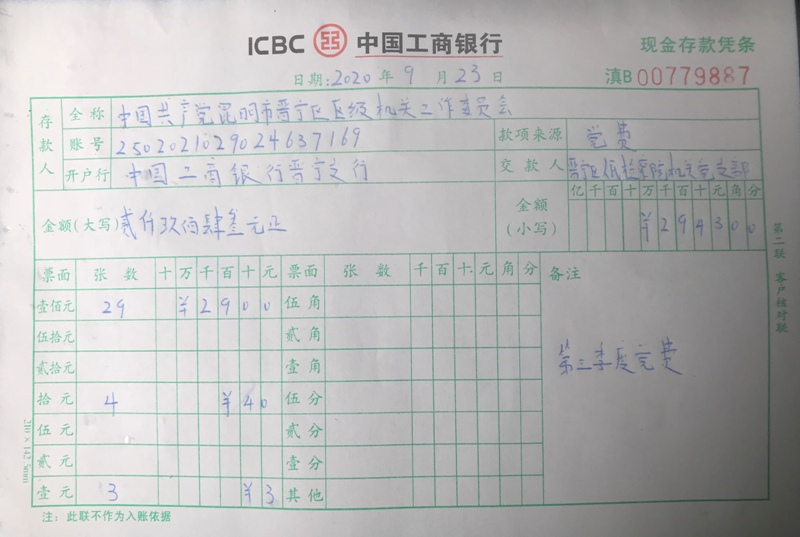 ICBC 中国工商银行
现金存款凭条
日期: 2020 年 9 月 23 日
滇B 00779887
存款人
全称 中国共产党昆明市晋宁区区级机关工作委员会
账号 2502021029024637169
款项来源 党费
开户行 中国工商银行晋宁支行
交款人 晋宁区人民检察院机关党支部
金额(大写) 贰仟玖佰肆叁元正
金额(小写)
亿 千 百 十 万 千 百 十 元 角 分
¥ 2 9 4 3 0 0
票面 张数 十 万 千 百 十 元 票面 张数 千 百 十 元 角 分 备注
壹佰元 29 ¥ 2 9 0 0 伍角
伍拾元 贰角
贰拾元 壹角
第三季度党费
拾元 4 ¥ 4 0 伍分
伍元 贰分
贰元 壹分
壹元 3 ¥ 3 其他
注:此联不作为入账依据
第二联 客户核对联
210×142.5mm